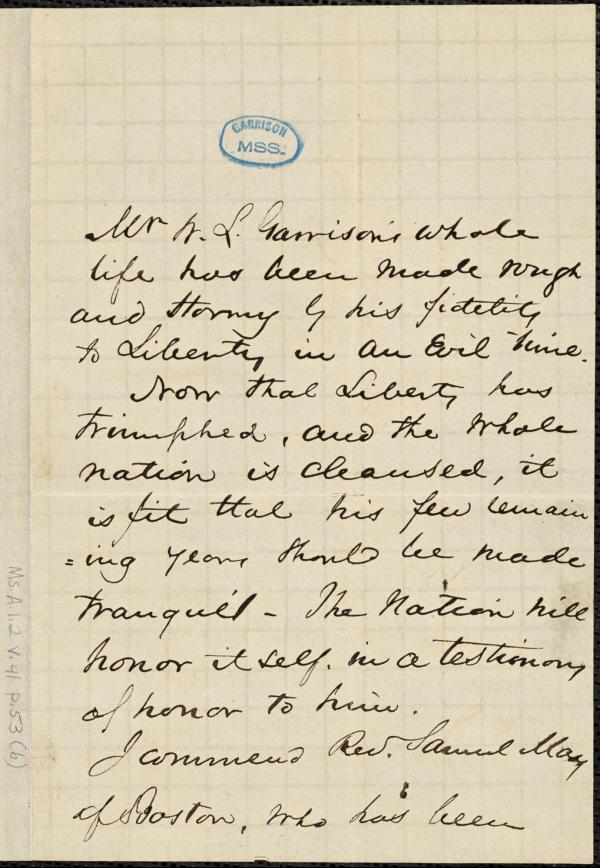 GARRISON
MSS.
Mr W. L. Garrison's whole
life has been made rough
and stormy by his fidelity
to Liberty in an Evil time.
Now that Liberty has
triumphed, and the whole
nation is cleansed, it
is fit that his few remain
=ing years should be made
tranquil - The Nation will
honor itself. in a testimony
of honor to him.
I commend Rev. Samuel May
of Boston, who has been
Ms A.1.2 v.41 p.53 (b)